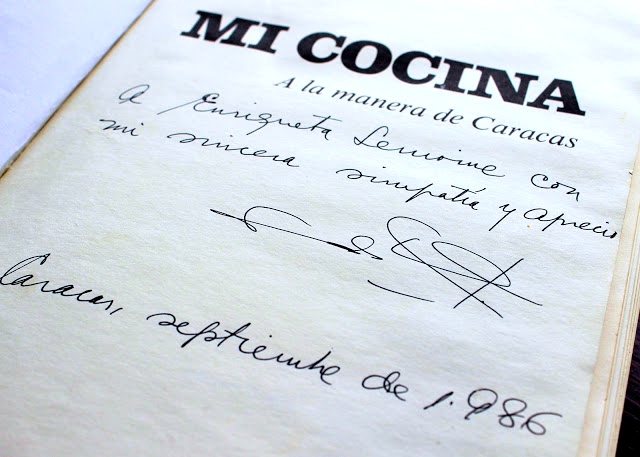 MI COCINA
A la manera de Caracas
A Enriqueta Lemoine con
mi sincera simpatía y aprecio
Caracas, septiembre de 1.986